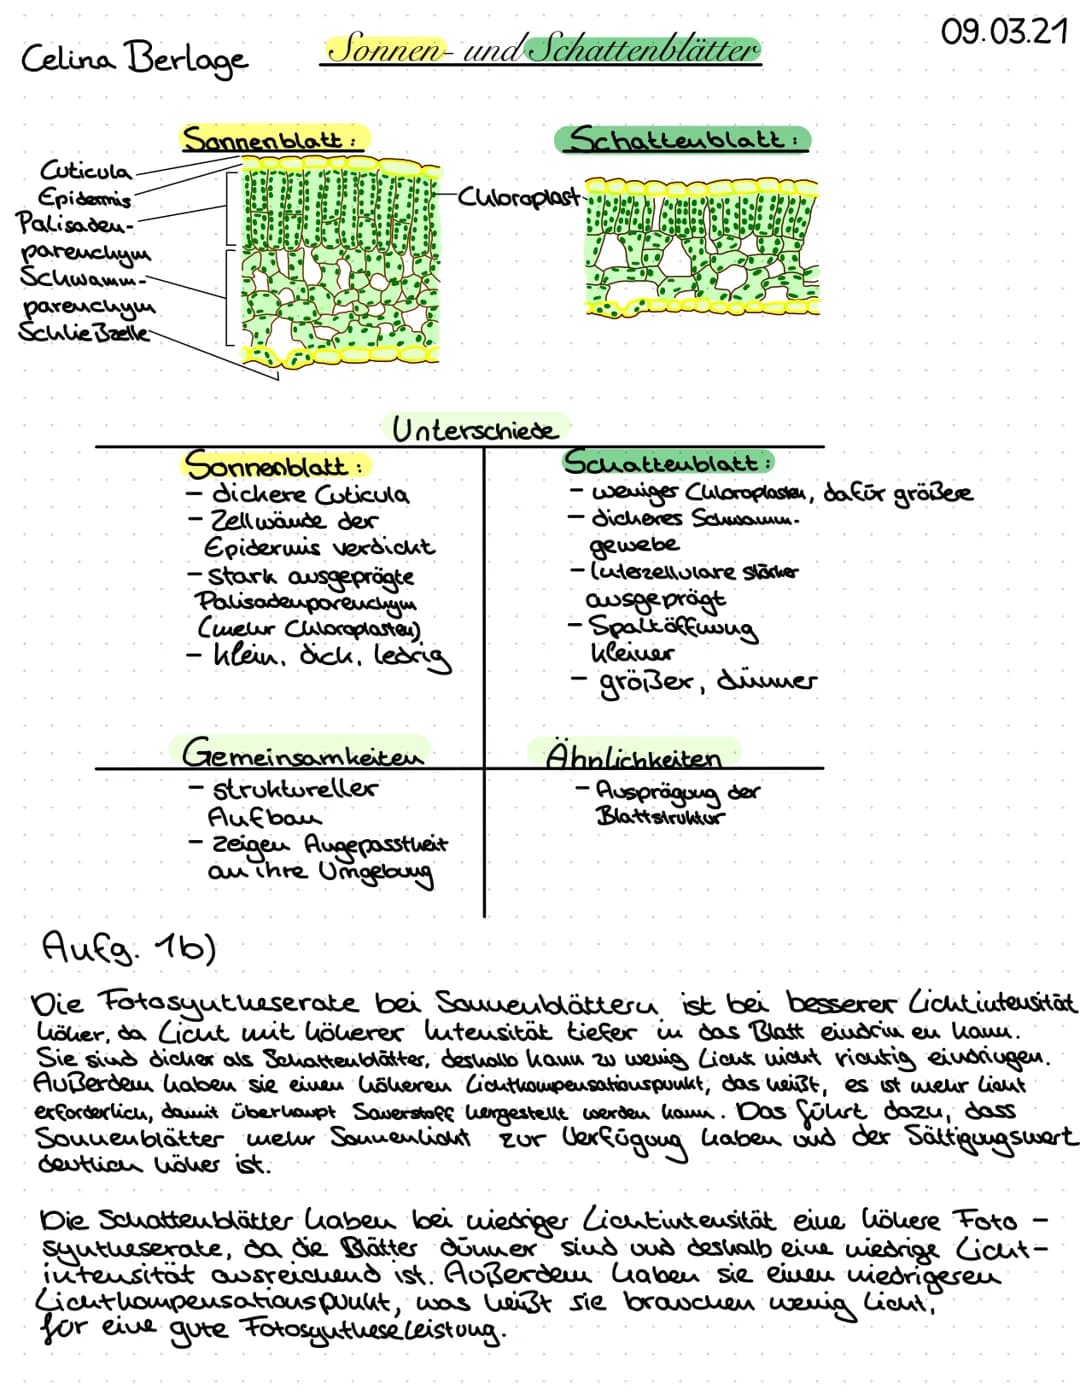 Celina Berlage
Sonnen- und Schattenblätter
09.03.21
Sonnenblatt:
Schattenblatt:
Cuticula
Epidermis
Palisaden-
parenchym
Schwamm-
parenchym
Schließzelle
Chloroplast
Unterschiede
Sonnenblatt:
- dickere Cuticula
- Zellwände der
Epidermis verdickt
- stark ausgeprägte
Palisadenparenchym
(mehr Chloroplasten)
- klein, dick, ledrig
Schattenblatt:
- weniger Chloroplasten, dafür größere
- dickeres Schwamm-
gewebe
- Interzellulare stärker
ausgeprägt
- Spaltöffnung
kleiner
- größer, dünner
Gemeinsamkeiten
- struktureller
Aufbau
- zeigen Angepasstheit
an ihre Umgebung
Ähnlichkeiten
- Ausprägung der
Blattstruktur
Aufg. 1b)
Die Fotosyntheserate bei Sonnenblättern ist bei besserer Lichtintensität
höher, da Licht mit höherer Intensität tiefer in das Blatt eindrin en kann.
Sie sind dicker als Schattenblätter, deshalb kann zu wenig Licht nicht richtig eindringen.
Außerdem haben sie einen höheren Lichtkompensationspunkt, das heißt, es ist mehr Licht
erforderlich, damit überhaupt Sauerstoff hergestellt werden kann. Das führt dazu, dass
Sonnenblätter mehr Sonnenlicht zur Verfügung haben und der Sättigungswert
deutlich höher ist.
Die Schattenblätter haben bei niedriger Lichtintensität eine höhere Foto -
syntheserate, da die Blätter dünner sind und deshalb eine niedrige Licht-
intensität ausreichend ist. Außerdem haben sie einen niedrigeren
Lichtkompensationspunkt, was heißt sie brauchen wenig Licht,
für eine gute Fotosyntheseleistung.